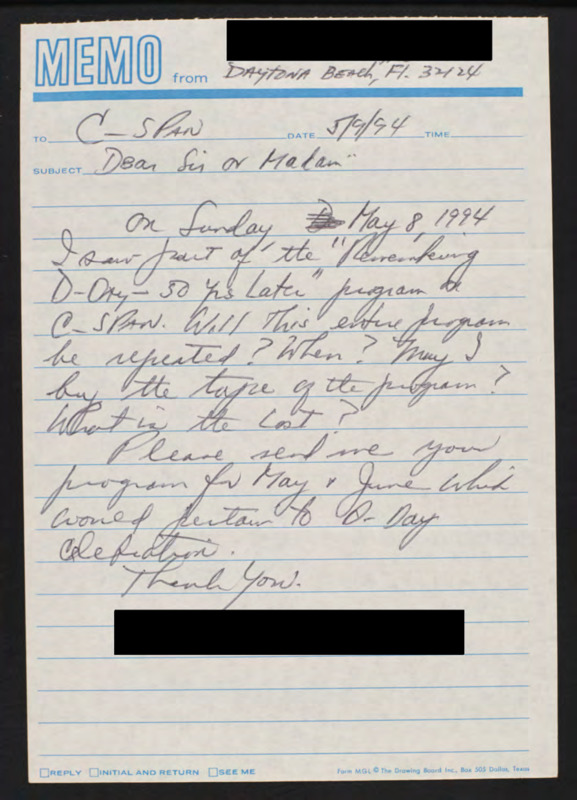 MEMO from Daytona Beach, Fl. 32124
TO C-SPAN DATE 5/9/94 TIME
SUBJECT Dear Sir or Madam"
On Sunday May 8, 1994
I saw part of the "Remembering
D-Day - 50 yrs Later" program on
C-SPAN. Will this entire program
be repeated? When? May I
buy the tape of the program?
What is the cost?
Please send me your
program for May & June which
would pertain to D-Day
celebration.
Thank You.
REPLY INITIAL AND RETURN SEE ME Form MGL © The Drawing Board Inc., Box 505 Dallas, Texas